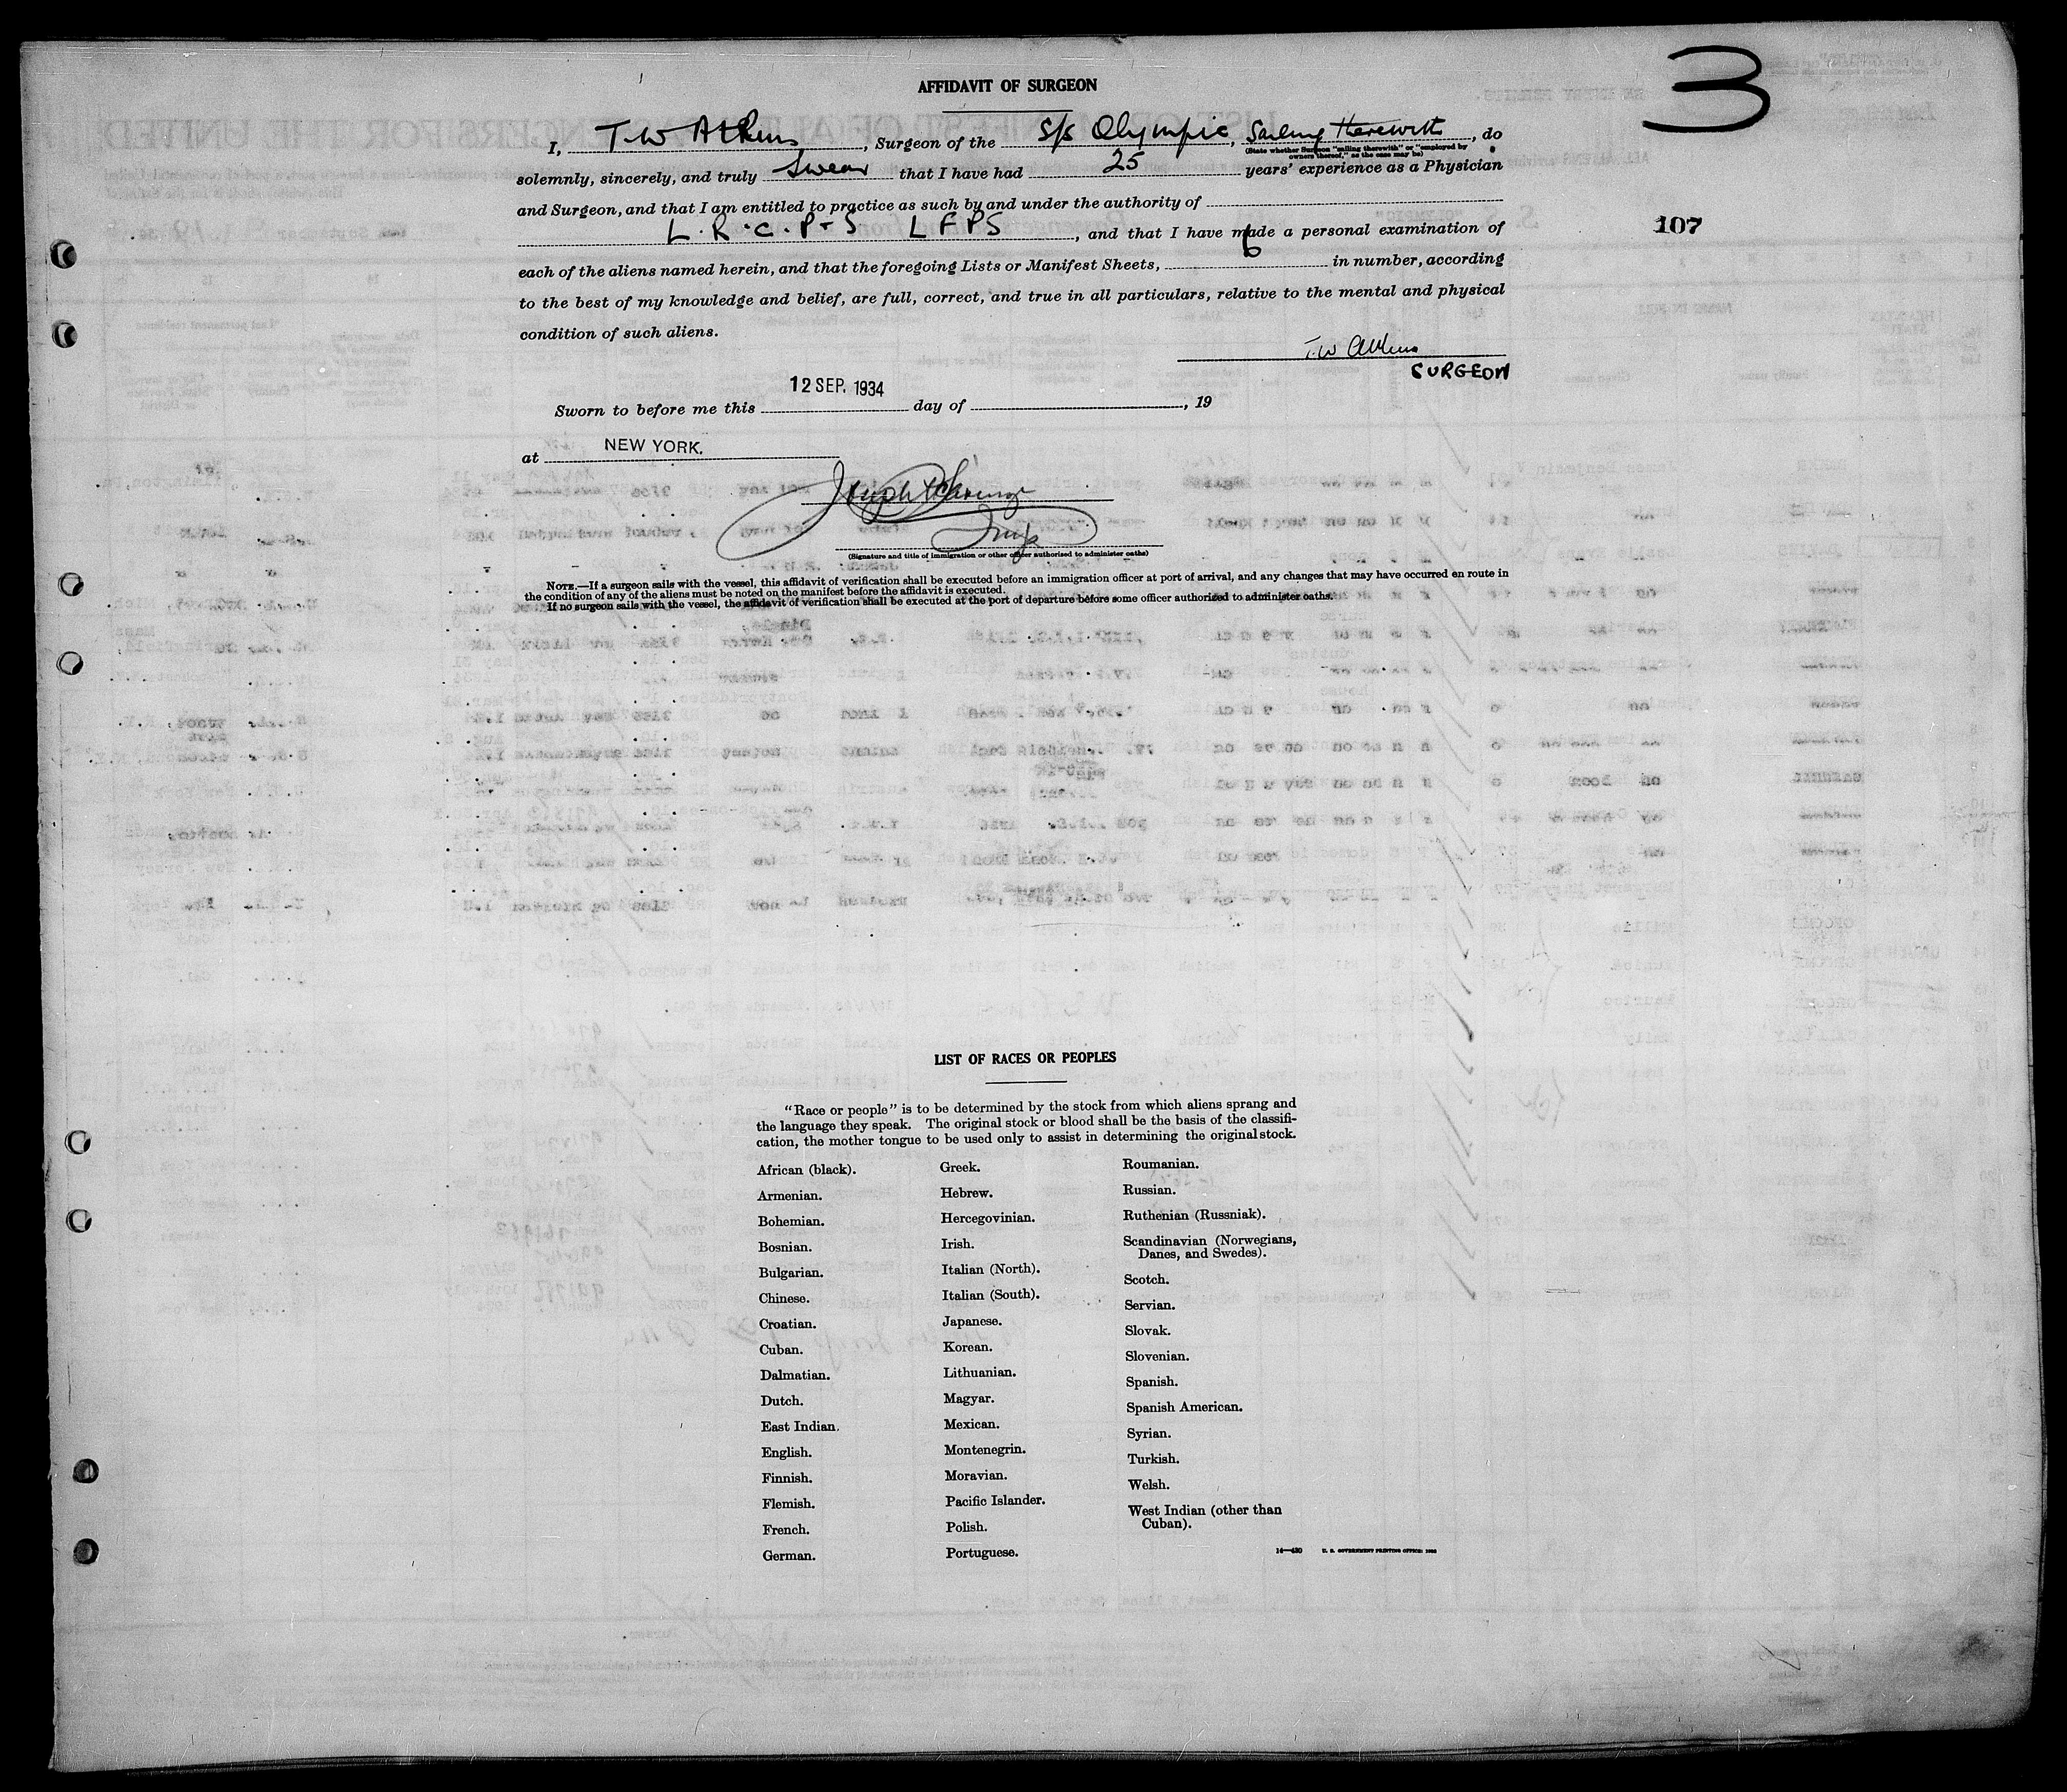 3
AFFIDAVIT OF SURGEON
I, T. W. Atkins, Surgeon of the S/S Olympic, Sailing therewith, do
(State whether Surgeon "sailing therewith" or "employed by
owners thereof," as the case may be)
solemnly, sincerely, and truly Swear that I have had 25 years' experience as a Physician
and Surgeon, and that I am entitled to practice as such by and under the authority of
L. R. C. P + S L F P S, and that I have made a personal examination of
107
each of the aliens named herein, and that the foregoing Lists or Manifest Sheets, 6 in number, according
to the best of my knowledge and belief, are full, correct, and true in all particulars, relative to the mental and physical
condition of such aliens.
T. W. Atkins
SURGEON
12 SEP. 1934
Sworn to before me this day of , 19
at NEW YORK.
(Signature and title of immigration or other officer authorized to administer oaths)
NOTE.—If a surgeon sails with the vessel, this affidavit of verification shall be executed before an immigration officer at port of arrival, and any changes that may have occurred en route in
the condition of any of the aliens must be noted on the manifest before the affidavit is executed.
If no surgeon sails with the vessel, the affidavit of verification shall be executed at the port of departure before some officer authorized to administer oaths.
LIST OF RACES OR PEOPLES
"Race or people" is to be determined by the stock from which aliens sprang and
the language they speak. The original stock or blood shall be the basis of the classifi-
cation, the mother tongue to be used only to assist in determining the original stock.
African (black).
Armenian.
Bohemian.
Bosnian.
Bulgarian.
Chinese.
Croatian.
Cuban.
Dalmatian.
Dutch.
East Indian.
English.
Finnish.
Flemish.
French.
German.
Greek.
Hebrew.
Hercegovinian.
Irish.
Italian (North).
Italian (South).
Japanese.
Korean.
Lithuanian.
Magyar.
Mexican.
Montenegrin.
Moravian.
Pacific Islander.
Polish.
Portuguese.
Roumanian.
Russian.
Ruthenian (Russniak).
Scandinavian (Norwegians,
Danes, and Swedes).
Scotch.
Servian.
Slovak.
Slovenian.
Spanish.
Spanish American.
Syrian.
Turkish.
Welsh.
West Indian (other than
Cuban).
14—430 U. S. GOVERNMENT PRINTING OFFICE: